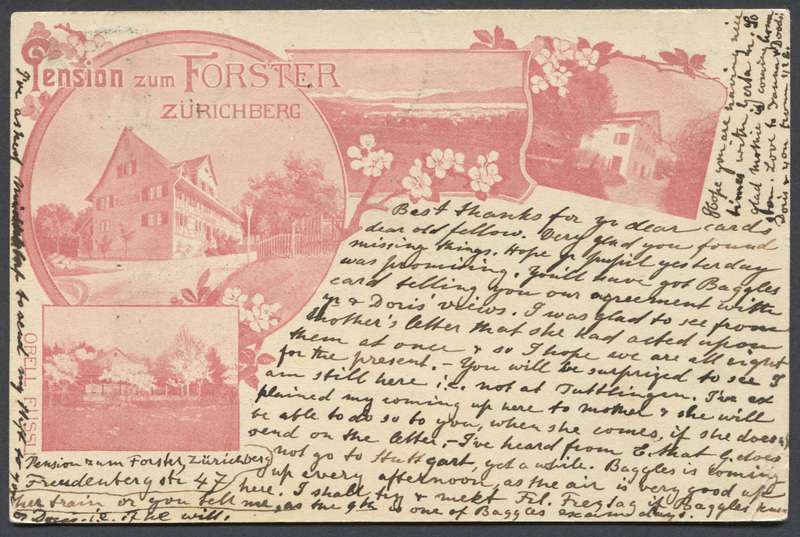 Pension zum FORSTER
ZÜRICHBERG
ORELL FÜSSLI
Best thanks for yr dear cards
dear old fellow. Very glad you found
missing things. Hope yr pupil yesterday
was promising. You'll have got Baggles
card telling you our agreement with
yr & Doris' views. I was glad to see from
Mother's letter that she had acted upon
them at once & so I hope we are all right
for the present. - You will be surprized to see I
am still here i.e. not at Tuttlingen. I've ex
plained my coming up here to mother & she will
be able to do so to you, when she comes, if she does
send on the letter. - I've heard from E. that G. does
not go to Stuttgart, yet a while. Baggles is coming
Pension zum Forster, Zürichberg
up every afternoon, as the air is very good up
Freudenberg str 47
here. I shall try & meet Frl. Freytag if Baggles knows
her train, or you tell me, as the 9th is one of Baggles exam days.
I've asked to send my
to Doris. i.e. if he will.
Hope you are having nice
times with Gerta M. So
glad mother is coming home
soon. Love to &
Doris & you from